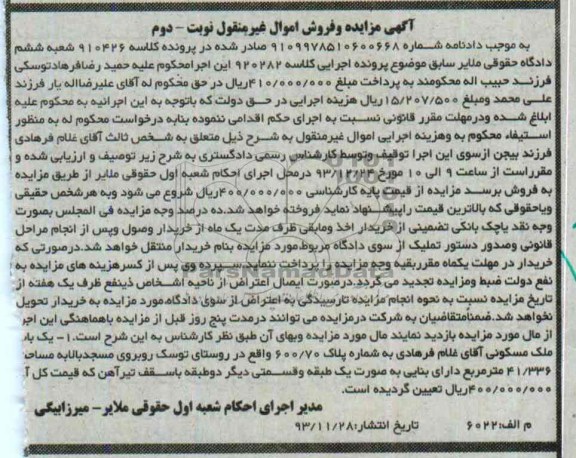 آگهی مزایده وفروش اموال غیرمنقول نوبت - دوم
به موجب دادنامه شماره ۹۱۰۹۹۷۸۵۱۰۶۰۰۶۶۸ صادر شده در پرونده کلاسه ۹۱۰۴۲۶ شعبه ششم
دادگاه حقوقی ملایر سابق موضوع پرونده اجرایی کلاسه ۹۲۰۲۸۲ این اجرامحکوم علیه حمید رضافرهادتوسکی
فرزند حبیب اله محکومند به پرداخت مبلغ ۴۱۰/۰۰۰/۰۰۰ریال در حق محکوم له آقای علیرضااله یار فرزند
علی محمد ومبلغ ۱۵/۲۰۷/۵۰۰ریال هزینه اجرایی در حق دولت که باتوجه به این اجرائیه به محکوم علیه
ابلاغ شده ودرمهلت مقرر قانونی نسبت به اجرای حکم اقدامی ننموده بنابه درخواست محکوم له به منظور
استیفاء محکوم به وهزینه اجرایی اموال غیرمنقول به شرح ذیل متعلق به شخص ثالث آقای غلام فرهادی
فرزند بیجن ازسوی این اجرا توقیف وتوسط کارشناس رسمی دادگستری به شرح زیر توصیف و ارزیابی شده و
مقرراست از ساعت ۹ الی ۱۰ مورخ ۹۳/۱۲/ درمحل اجرای احکام شعبه اول حقوقی ملایر از طریق مزایده
به فروش برسد مزایده از قیمت پایه کارشناسی ۴۰۰/۰۰۰/۰۰۰ریال شروع می شود وبه هرشخص حقیقی
ویاحقوقی که بالاترین قیمت راپیشنهاد نماید فروخته خواهد شد.ده درصد وجه مزایده فی المجلس بصورت
وجه نقد یاچک بانکی تضمینی ازخریدار اخذ ومابقی ظرف مدت یک ماه از خریدار وصول وپس از انجام مراحل
قانونی وصدور دستور تملیک از سوی دادگاه مربوط.مورد مزایده بنام خریدار منتقل خواهد شد.درصورتی که
خریدار در مهلت یکماه مقرربقیه وجه مزایده را پرداخت ننماید.سپرده وی پس از کسرهزینه های مزایده به
نفع دولت ضبط ومزایده تجدید می گردد.درصورت ایصال اعتراض از ناحیه اشخاص ذینفع ظرف یک هفته از
تاریخ مزایده نسبت به نحوه انجام مزایده تارسیدگی به اعتراض از سوی دادگاه.مورد مزایده به خریدار تحویل
نخواهد شد.ضمنامتقاضیان به شرکت درمزایده می توانند درمدت پنج روز قبل از مزایده باهماهنگی این اجر
از مال مورد مزایده بازدید نمایند مال مورد مزایده وبهای آن طبق نظر کارشناس به این شرح است.۱- یک باب
ملک مسکونی آقای غلام فرهادی به شماره پلاک ۶۰۰/۷۰ واقع در روستای توسک روبروی مسجدباالبه مساحت
۴۱/۳۳۶ مترمربع دارای بنایی به صورت یک طبقه وقسمتی دیگر دوطبقه باسقف تیرآهن که قیمت کل آ
۴۰۰/۰۰۰/۰۰۰ریال تعیین گردیده است.
مدیر اجرای احکام شعبه اول حقوقی ملایر- میرزابیگی
م الف:۶۰۲۲ تاریخ انتشار:۹۳/۱۱/۲۸
ParsNamadData